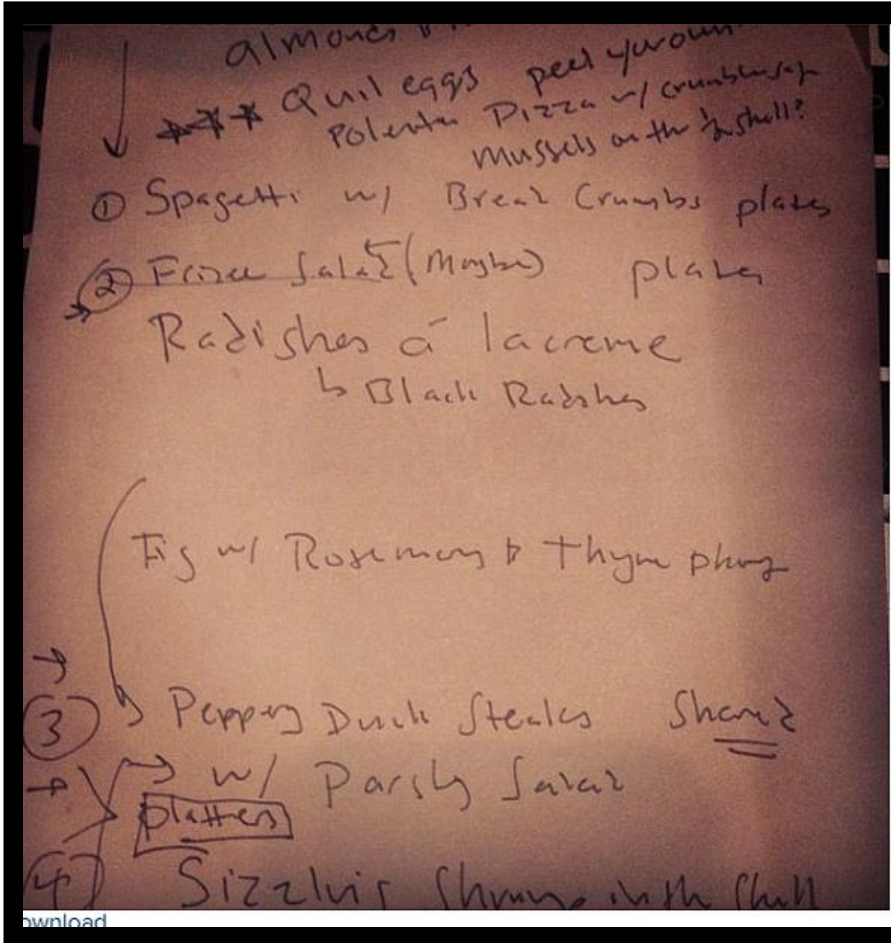 almonds
*** Quil eggs peel your own
Polenta Pizza w/
Mussels on the ½ shell?
① Spagetti w/ Bread Crumbs plates
② Frisee Salad (Maybe) plates
Radishes á lacreme
↳ Black Radishes
Fig w/ Rosemary & Thyme
③ Peppery Duck Steaks Shared
w/ Parsly Salad
platters
④ Sizzling Shrimp in the Shell
ownload